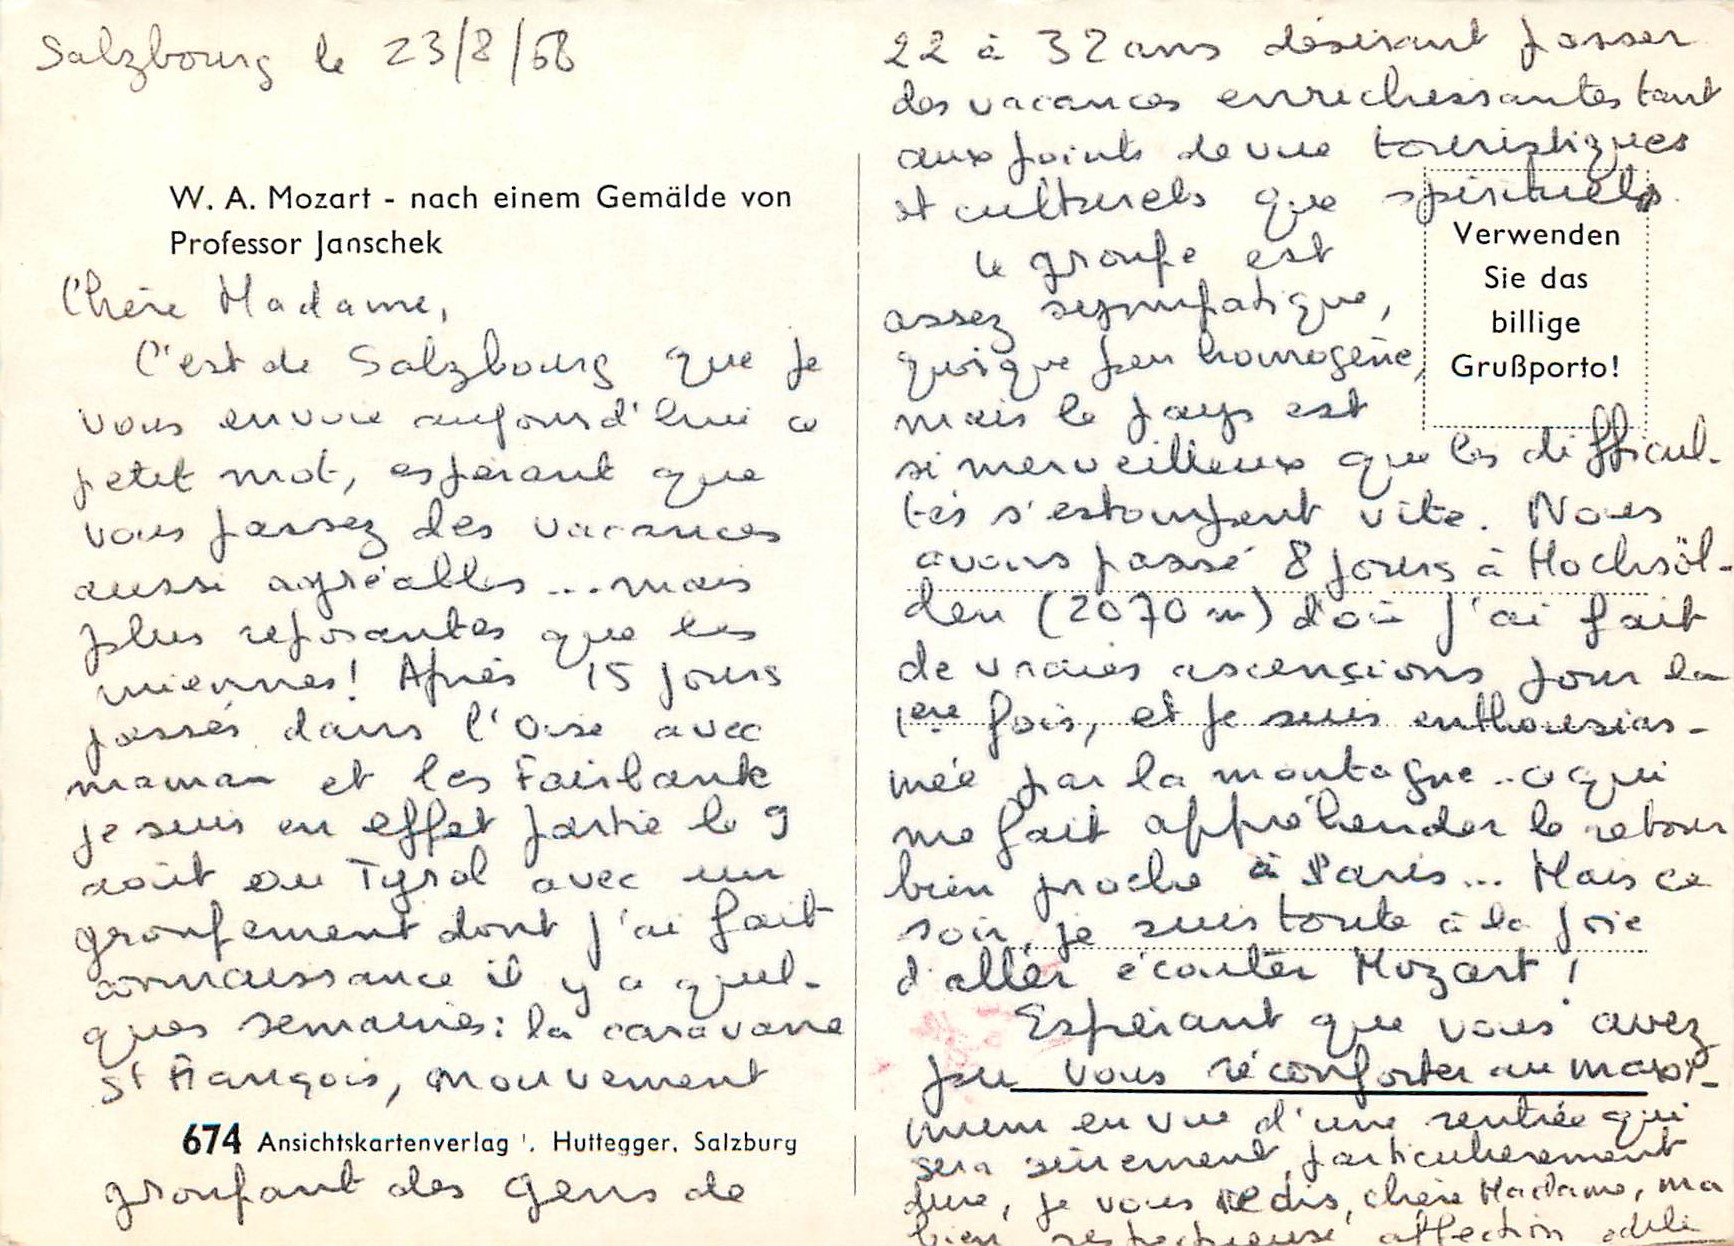 Salzbourg le 23/8/68
W. A. Mozart - nach einem Gemälde von
Professor Janschek
Chère Madame,
C'est de Salzbourg que je
vous envoie aujourd'hui ce
petit mot, espérant que
vous passez des vacances
aussi agréables... mais
plus reposantes que les
miennes! Après 15 jours
passés dans l'Oise avec
maman et les Fairbank
je suis en effet partie le 9
août au Tyrol avec un
groupement dont j'ai fait
connaissance il y a quel-
ques semaines: la caravane
St François, mouvement
674 Ansichtskartenverlag . Huttegger, Salzburg
groupant des gens de
22 à 32 ans désirant passer
des vacances enrichissantes tant
aux points de vue touristiques
et culturels que spirituels.
Le groupe est
assez sympatique,
quoique peu homogène,
mais le pays est
si merveilleux que les difficul-
tés s'estompent vite. Nous
avons passé 8 jours à Hochsöl-
den (2070 m) d'où j'ai fait
de vraies ascençions pour la
1ère fois, et je suis enthousias-
mée par la montagne.. ce qui
me fait appréhender le retour
bien proche à Paris... Mais ce
soir, je suis toute à la joie
d'aller écouter Mozart!
Espérant que vous avez
pu vous réconforter au maxi-
mum en vue d'une rentrée qui
sera sûrement particulièrement
dure, je vous redis, chère Madame, ma
bien respectueuse affection
Verwenden
Sie das
billige
Grußporto!